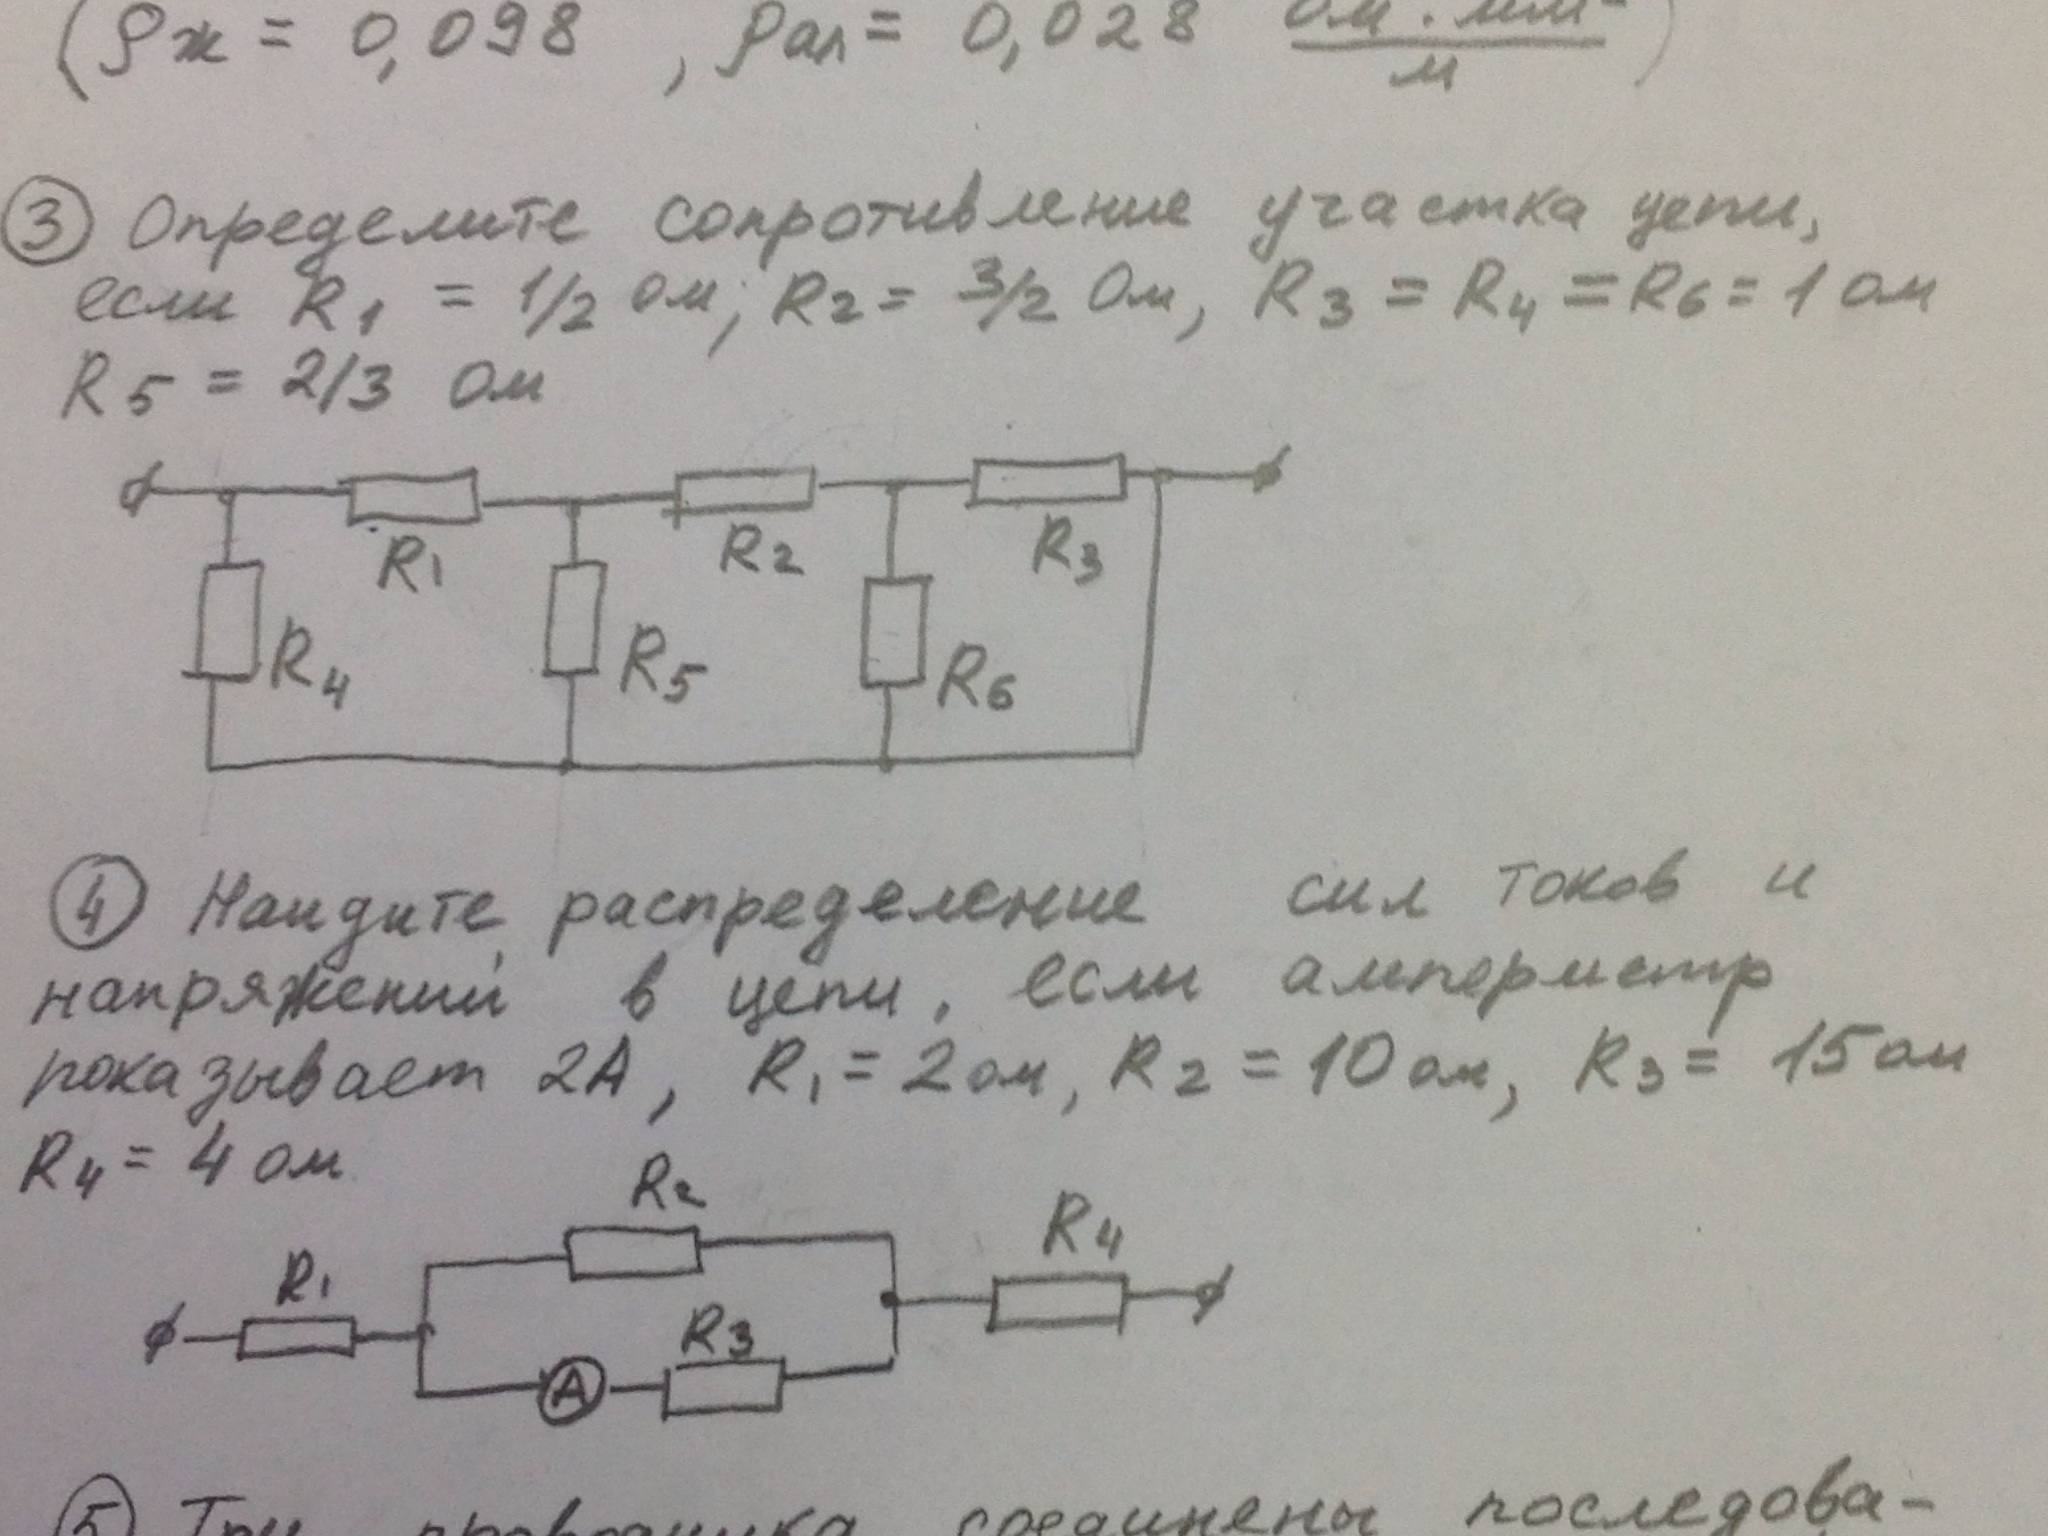 (ρж = 0,098 , ρал = 0,028 Ом · мм²/м)
③ Определите сопротивление участка цепи,
если R1 = 1/2 ом; R2 = 3/2 Ом, R3 = R4 = R6 = 1 ом
R5 = 2/3 Ом
R1 R2 R3
R4 R5 R6
④ Найдите распределение сил токов и
напряжений в цепи, если амперметр
показывает 2А, R1 = 2 ом, R2 = 10 ом, R3 = 15 ом
R4 = 4 ом
R2
R1 R4
R3
A
⑤ Три проводника соединены последова-